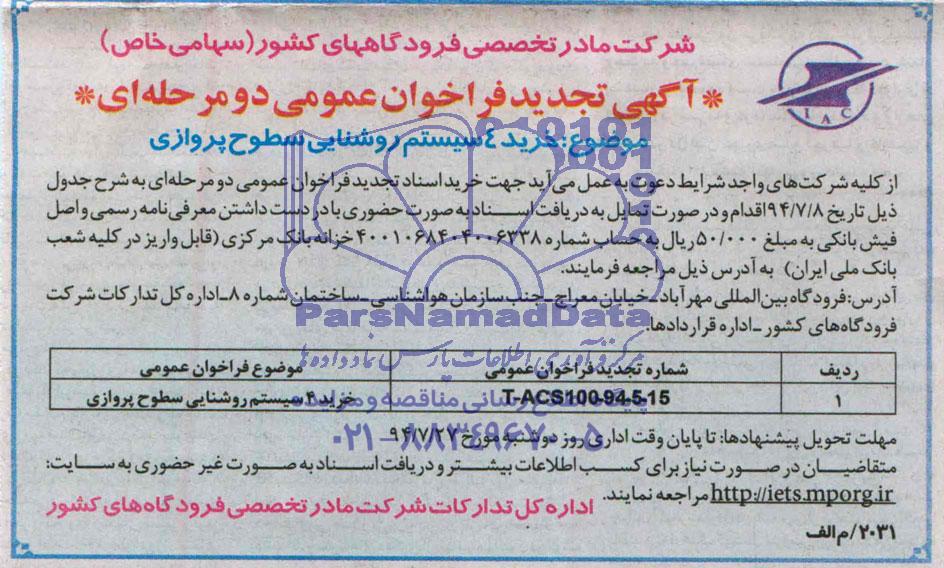 شرکت مادر تخصصی فرودگاههای کشور (سهامی خاص)
* آگهی تجدید فراخوان عمومی دو مرحله‌ای *
موضوع: خرید ٤ سیستم روشنایی سطوح پروازی
IAC
از کلیه شرکت‌های واجد شرایط دعوت به عمل می‌آید جهت خرید اسناد تجدید فراخوان عمومی دو مرحله‌ای به شرح جدول
ذیل تاریخ ۹۴/۷/۸ اقدام و در صورت تمایل به دریافت اسناد به صورت حضوری با در دست داشتن معرفی‌نامه رسمی و اصل
فیش بانکی به مبلغ ۵۰/۰۰۰ ریال به حساب شماره ۴۰۰۱۰۶۸۴۰۴۰۰۶۳۳۸ خزانه بانک مرکزی (قابل واریز در کلیه شعب
بانک ملی ایران) به آدرس ذیل مراجعه فرمایند.
آدرس: فرودگاه بین‌المللی مهرآباد ـ خیابان معراج ـ جنب سازمان هواشناسی ـ ساختمان شماره ۸ ـ اداره کل تدارکات شرکت
فرودگاه‌های کشور ـ اداره قراردادها.
ParsNamadData
مرکز فرآوری اطلاعات پارس نماد داده ها
ردیف شماره تجدید فراخوان عمومی موضوع فراخوان عمومی
۱ T-ACS100-94-5-15 خرید ۴ سیستم روشنایی سطوح پروازی
پایگاه اطلاع رسانی مناقصه و مزایده
مهلت تحویل پیشنهادها: تا پایان وقت اداری روز دوشنبه مورخ ۹۴/۷/۲۷
۰۲۱-۸۸۳٤۹٦۷۰-۵
متقاضیان در صورت نیاز برای کسب اطلاعات بیشتر و دریافت اسناد به صورت غیر حضوری به سایت:
http://iets.mporg.ir مراجعه نمایند.
اداره کل تدارکات شرکت مادر تخصصی فرودگاه‌های کشور
۲۰۳۱/م الف